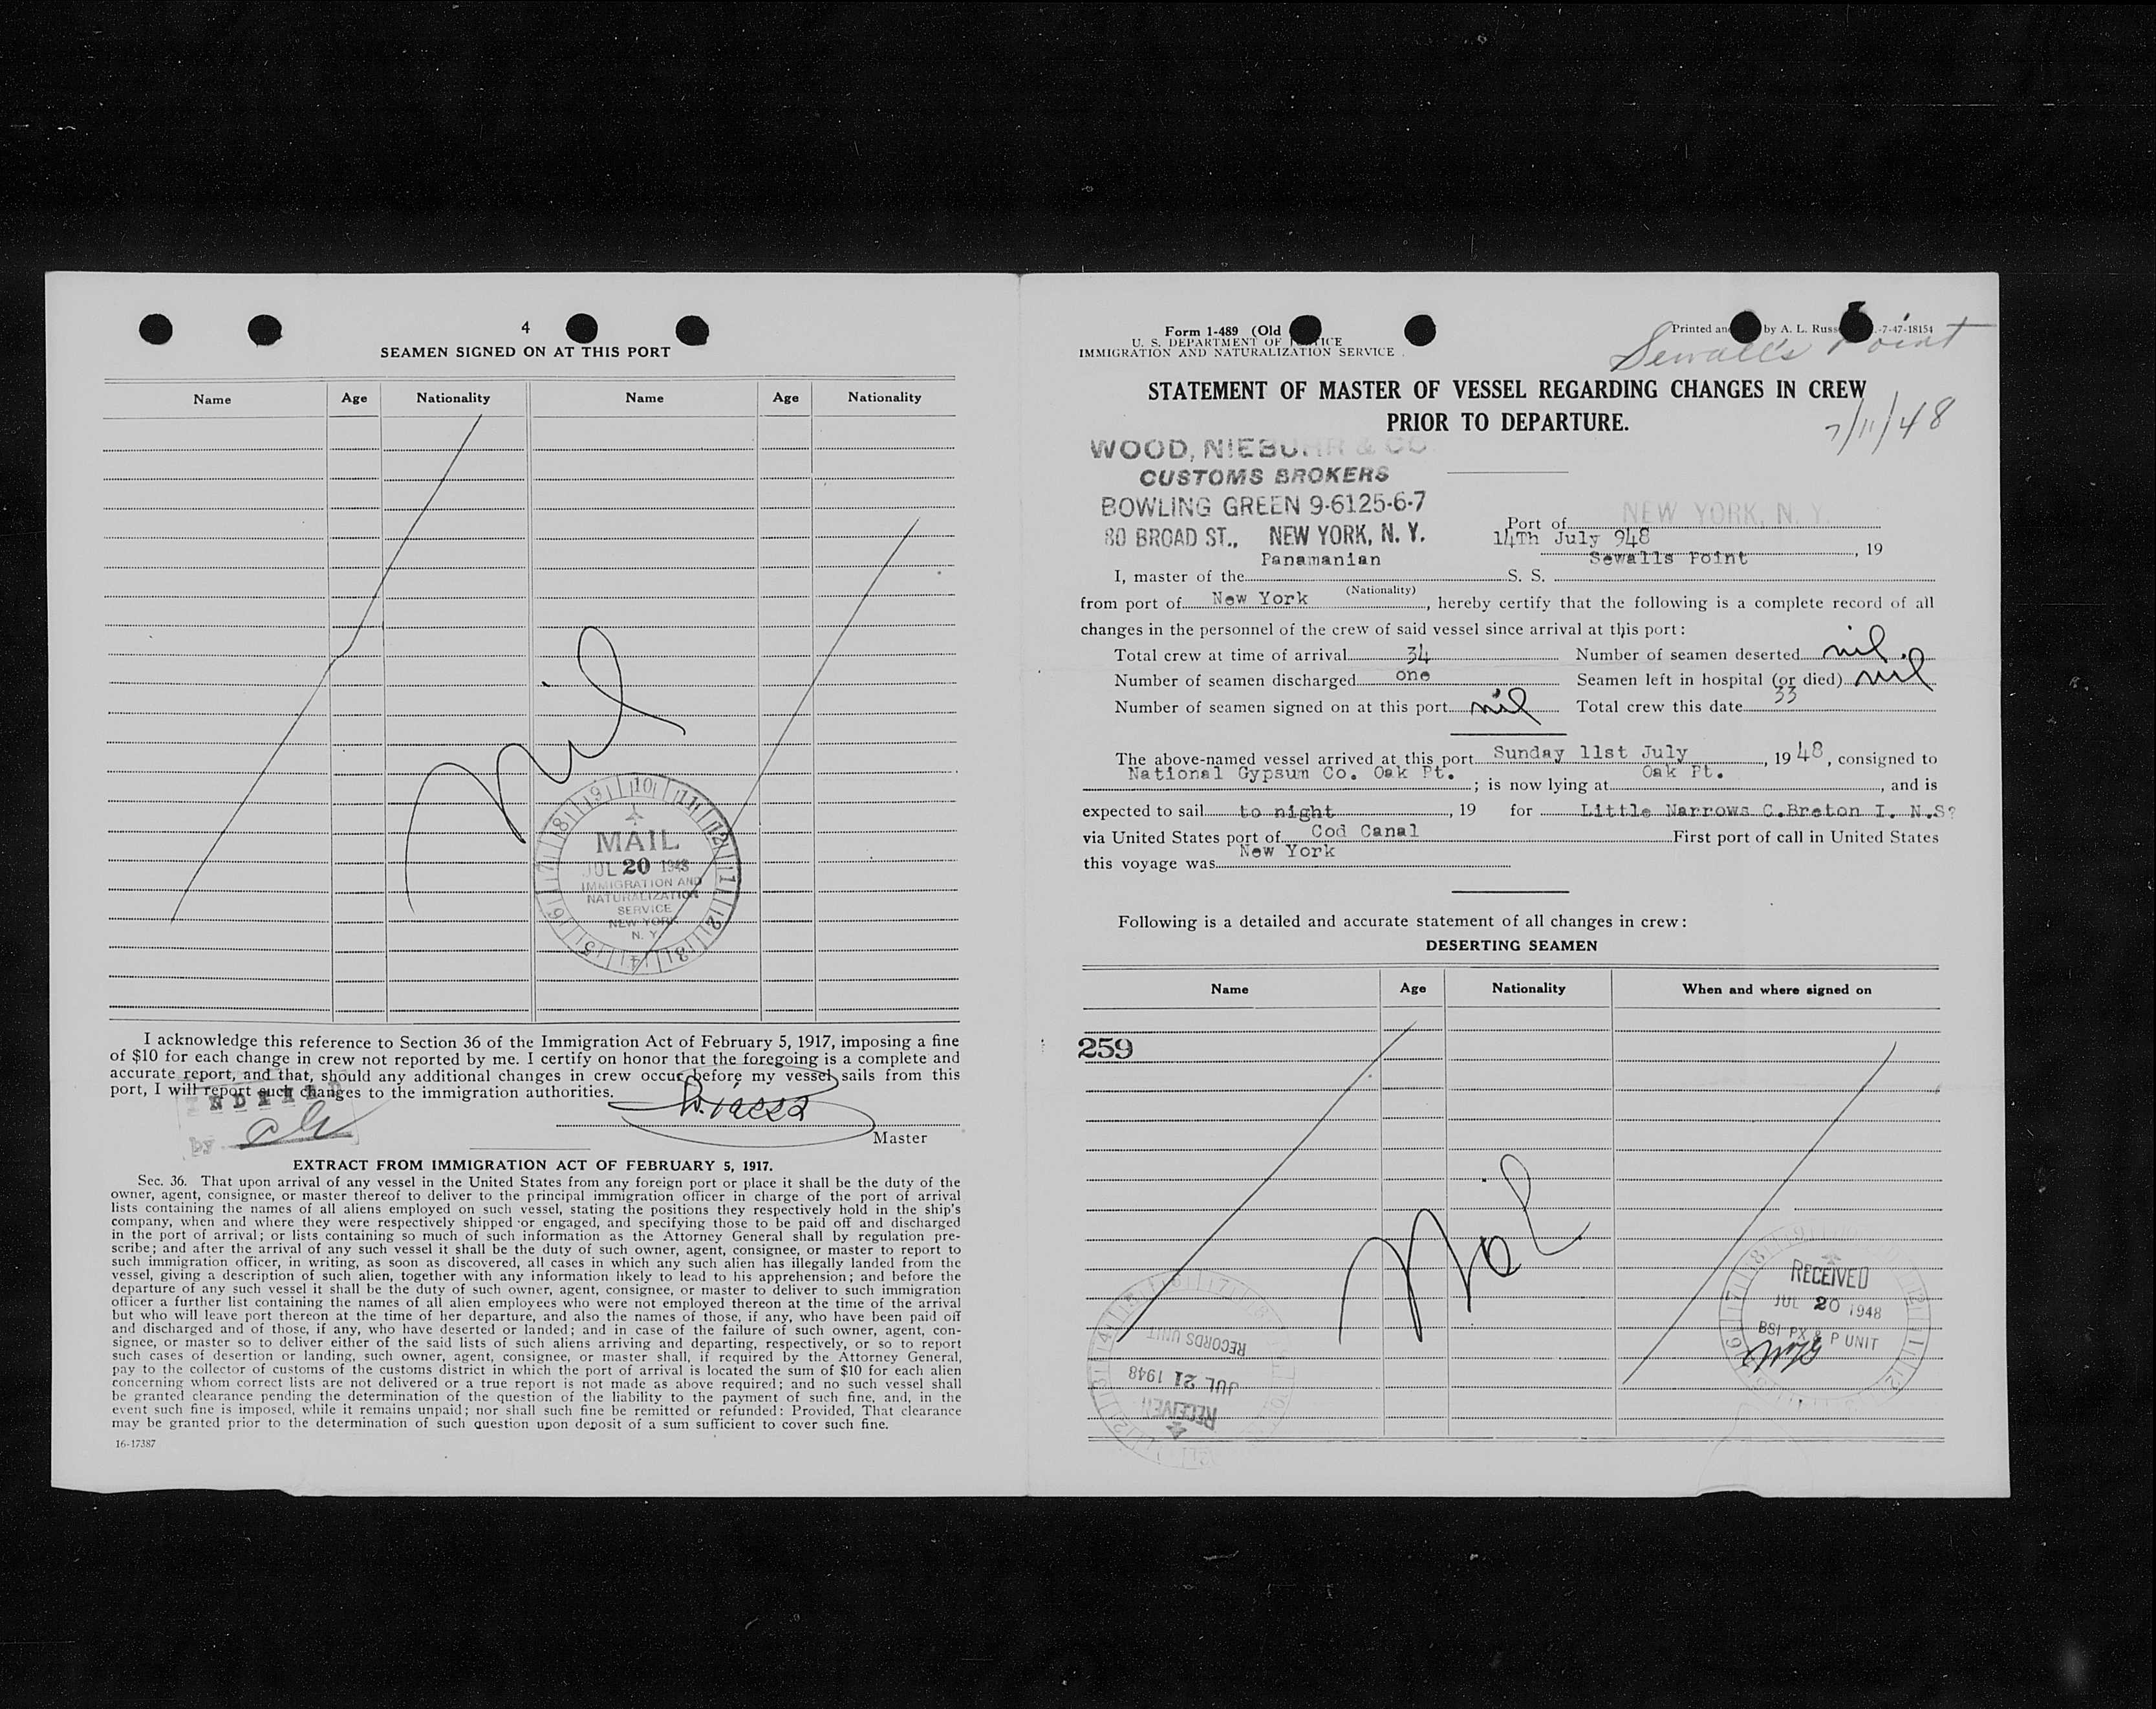 4
SEAMEN SIGNED ON AT THIS PORT
Name Age Nationality Name Age Nationality
Nil
MAIL
JUL 20 1948
IMMIGRATION AND
NATURALIZATION
SERVICE
NEW YORK
N. Y.
I acknowledge this reference to Section 36 of the Immigration Act of February 5, 1917, imposing a fine
of $10 for each change in crew not reported by me. I certify on honor that the foregoing is a complete and
accurate report, and that, should any additional changes in crew occur before my vessel sails from this
port, I will report such changes to the immigration authorities.
by
Master
EXTRACT FROM IMMIGRATION ACT OF FEBRUARY 5, 1917.
Sec. 36. That upon arrival of any vessel in the United States from any foreign port or place it shall be the duty of the
owner, agent, consignee, or master thereof to deliver to the principal immigration officer in charge of the port of arrival
lists containing the names of all aliens employed on such vessel, stating the positions they respectively hold in the ship's
company, when and where they were respectively shipped or engaged, and specifying those to be paid off and discharged
in the port of arrival; or lists containing so much of such information as the Attorney General shall by regulation pre-
scribe; and after the arrival of any such vessel it shall be the duty of such owner, agent, consignee, or master to report to
such immigration officer, in writing, as soon as discovered, all cases in which any such alien has illegally landed from the
vessel, giving a description of such alien, together with any information likely to lead to his apprehension; and before the
departure of any such vessel it shall be the duty of such owner, agent, consignee, or master to deliver to such immigration
officer a further list containing the names of all alien employees who were not employed thereon at the time of the arrival
but who will leave port thereon at the time of her departure, and also the names of those, if any, who have been paid off
and discharged and of those, if any, who have deserted or landed; and in case of the failure of such owner, agent, con-
signee, or master so to deliver either of the said lists of such aliens arriving and departing, respectively, or so to report
such cases of desertion or landing, such owner, agent, consignee, or master shall, if required by the Attorney General,
pay to the collector of customs of the customs district in which the port of arrival is located the sum of $10 for each alien
concerning whom correct lists are not delivered or a true report is not made as above required; and no such vessel shall
be granted clearance pending the determination of the question of the liability to the payment of such fine, and, in the
event such fine is imposed, while it remains unpaid; nor shall such fine be remitted or refunded: Provided, That clearance
may be granted prior to the determination of such question upon deposit of a sum sufficient to cover such fine.
16-17387
Form 1-489 (Old
Printed an by A. L. Russ -7-47-18154
U. S. DEPARTMENT OF JUSTICE
IMMIGRATION AND NATURALIZATION SERVICE
Sewall's Point
STATEMENT OF MASTER OF VESSEL REGARDING CHANGES IN CREW
PRIOR TO DEPARTURE.
7/11/48
WOOD, NIEBUHR & CO
CUSTOMS BROKERS
BOWLING GREEN 9-6125-6-7
80 BROAD ST., NEW YORK, N. Y.
Port of NEW YORK, N. Y.
14Th July 948 , 19
I, master of the Panamanian S. S. Sewalls Point
(Nationality)
from port of New York , hereby certify that the following is a complete record of all
changes in the personnel of the crew of said vessel since arrival at this port:
Total crew at time of arrival 34 Number of seamen deserted nil
Number of seamen discharged one Seamen left in hospital (or died) nil
Number of seamen signed on at this port nil Total crew this date 33
The above-named vessel arrived at this port Sunday 11st July , 1948, consigned to
National Gypsum Co. Oak Pt. ; is now lying at Oak Pt. , and is
expected to sail to night , 19 for Little Narrows C.Breton I. N.S?
via United States port of Cod Canal First port of call in United States
this voyage was New York
Following is a detailed and accurate statement of all changes in crew:
DESERTING SEAMEN
Name Age Nationality When and where signed on
259
Nil
RECEIVED
JUL 20 1948
BSI PX & P UNIT
RECEIVED
JUL 21 1948
RECORDS UNIT